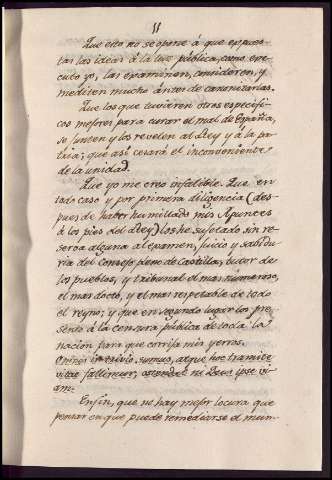 11
Que esto no se opone à que expues-
tas las ideas à la luz pública, como exe-
cuto yo, las examinen, consideren, y
mediten mucho ántes de canonizarlas.
Que los que tuvieren otros específi-
cos mejores para curar el mal de España,
se juncen y los revelen al Rey y à la pa-
tria; que así cesará el inconveniente
de la unidad.
Que yo me creo infalible. Que en
todo caso y por primera diligencia (des-
pues de haber humillado mis Apuntes
à los pies del Rey) los he sujetado sin re-
serva alguna al exâmen, juicio y sabidu-
ría del Consejo pleno de Castilla, tutor de
los pueblos, y tribunal el mas numeroso,
el mas docto, y el mas respetable de todo
el reyno; y que en segundo lugar los pre-
sento à la censura pública de toda la
nacion para que corrija mis yerros.
Omnes in salvo sumus, atque hoc tramite
vitae fallimur, ostendat ni Deus ipse vi-
am.
Enfin, que no hay mejor locura que
pensar en que puede remediarse el mun-